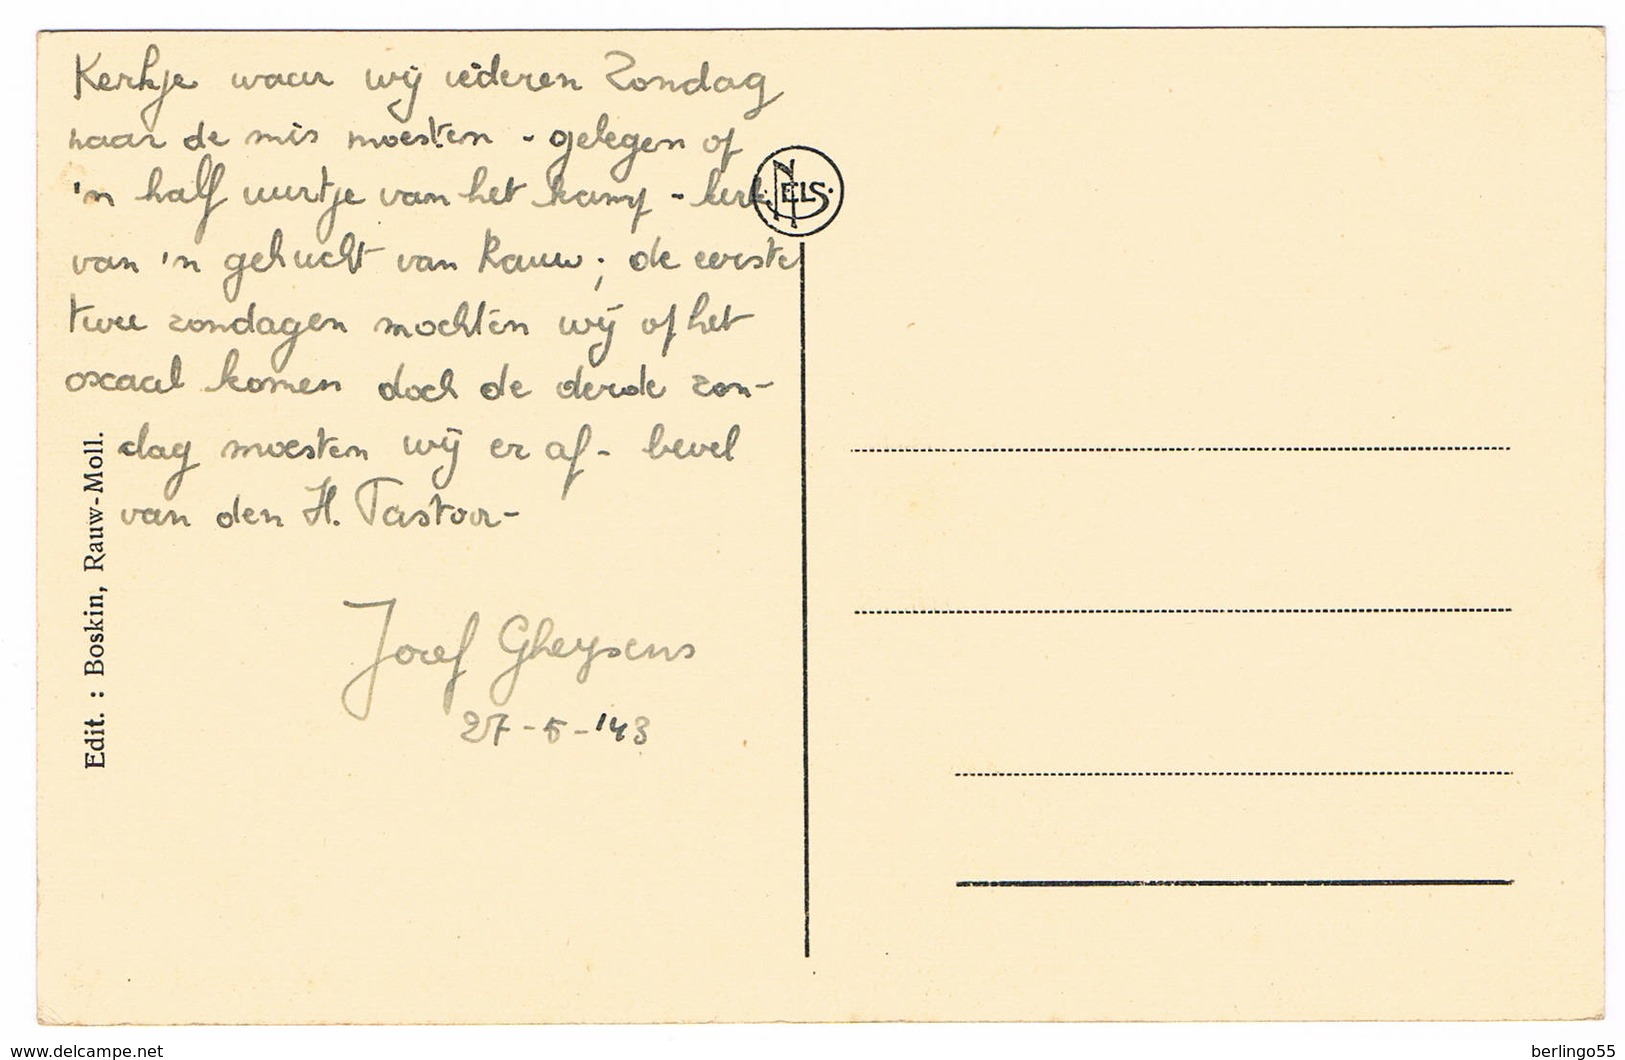 Kerkje waar wij iederen Zondag
naar de mis moesten - gelegen op
'n half uurtje van het kamp - kerk
van 'n gehucht van Rauw; de eerste
twee zondagen mochten wij op het
oxaal komen doch de derde zon-
dag moesten wij er af - bevel
van den H. Pastoor -
Jozef Gheysens
27-5-'43
NELS
Edit. : Boskin, Rauw-Moll.
www.delcampe.net
berlingo55